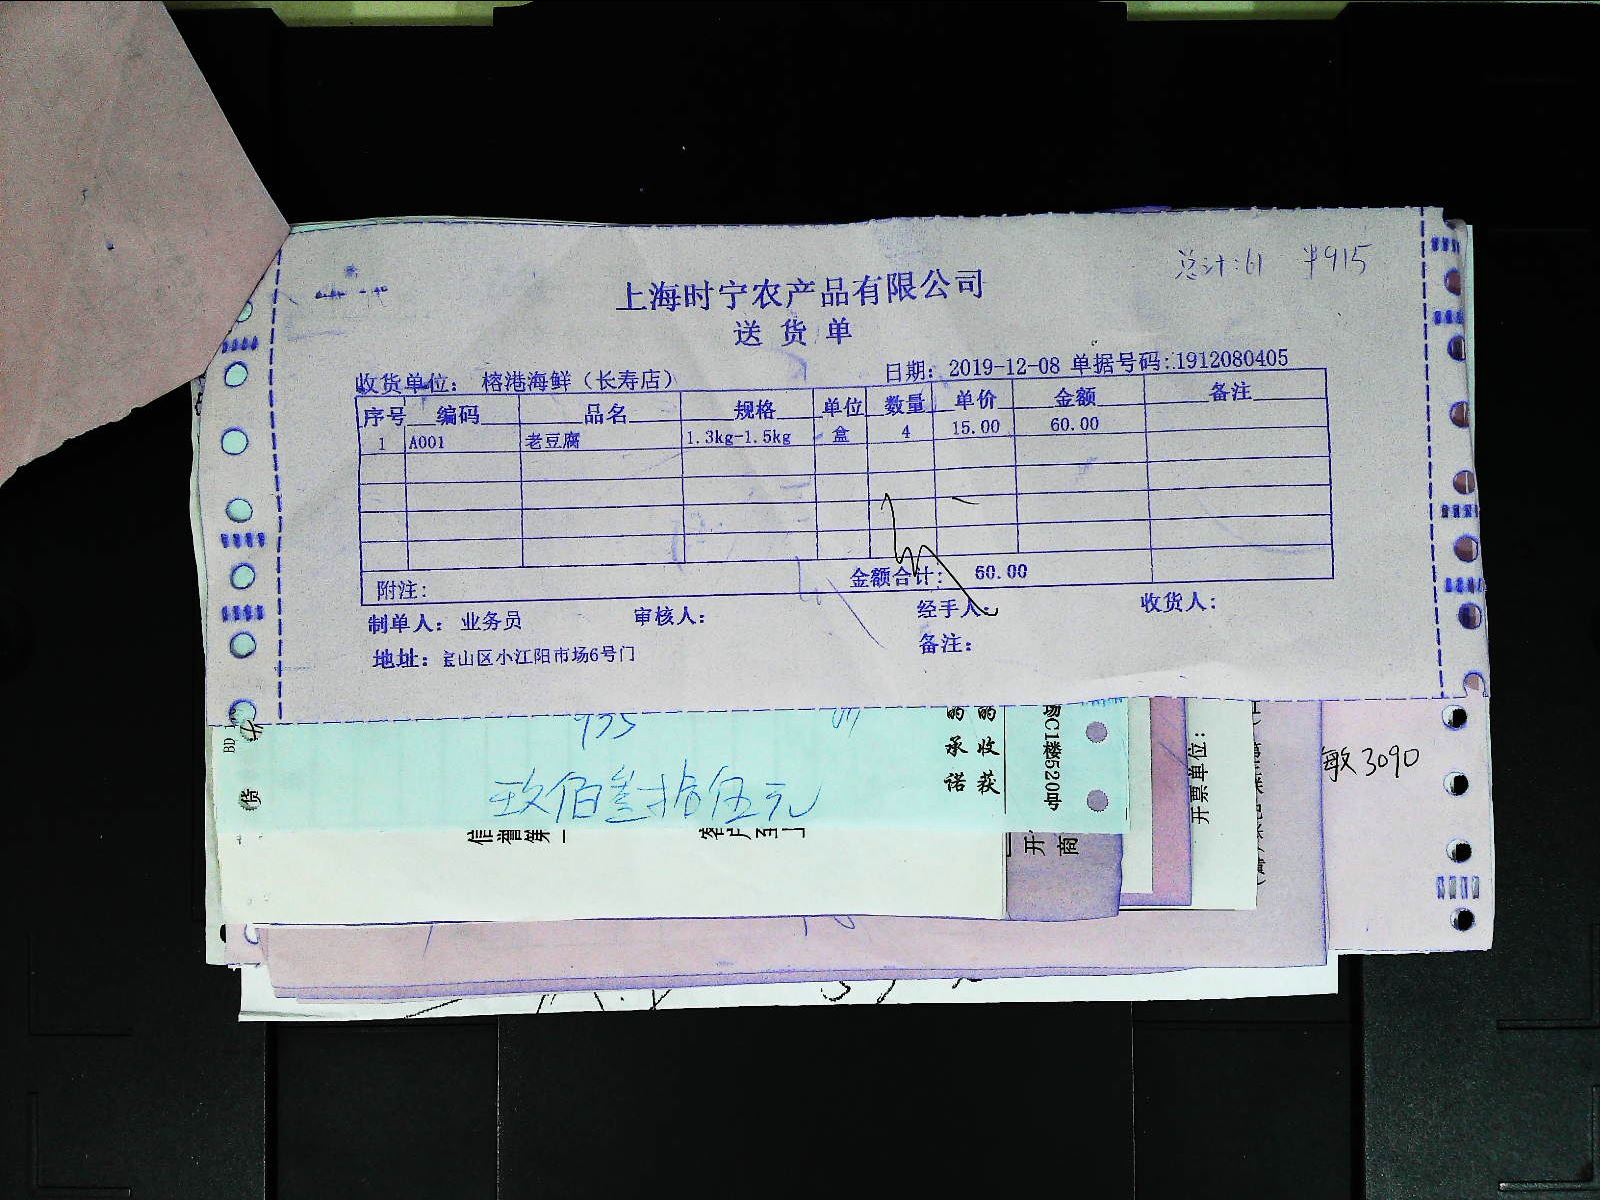 总计:61 半915
上海时宁农产品有限公司
送 货 单
收货单位: 榕港海鲜（长寿店） 日期: 2019-12-08 单据号码:1912080405
序号 编码 品名 规格 单位 数量 单价 金额 备注
1 A001 老豆腐 1.3kg-1.5kg 盒 4 15.00 60.00
附注: 金额合计: 60.00
制单人: 业务员 审核人: 经手人: 收货人:
地址: 宝山区小江阳市场6号门 备注:
935
玖佰叁拾伍元
的承诺
的收获
场C1楼520号
开票单位:
敏3090
BD
货
开
商